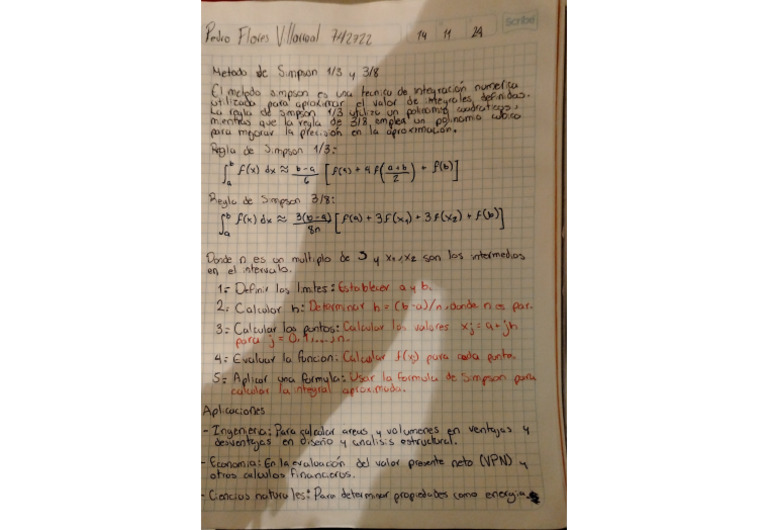 Pedro Flores Villarreal 7A12022 14 11 24
Scribe
Metodo de Simpson 1/3 y 3/8
El metodo simpson es una tecnica de integración numerica
utilizada para aproximar el valor de integrales definidas.
La regla de simpson 1/3 utiliza un polinomio cuadratico,
mientras que la regla de 3/8 emplea un polinomio cubico
para mejorar la precisión en la aproximación.
Regla de Simpson 1/3:
∫_a^b f(x) dx ≈ (b-a)/6 [f(a) + 4 f((a+b)/2) + f(b)]
Regla de Simpson 3/8:
∫_a^b f(x) dx ≈ 3(b-a)/8n [f(a) + 3f(x₁) + 3f(x₂) + f(b)]
Donde n es un multiplo de 3 y x₁,x₂ son los intermedios
en el intervalo.
1= Definir los limites: Establecer a y b.
2= Calcular h: Determinar h = (b-a)/n, donde n es par.
3= Calcular los puntos: Calcular los valores xj = a + jh
para j = 0, 1, ..., n.
4= Evaluar la funcion: Calcular f(xj) para cada punto.
5= Aplicar una formula: Usar la formula de Simpson para
calcular la integral aproximada.
Aplicaciones
- Ingenieria: Para calcular areas y volumenes en ventajas y
desventajas en diseño y analisis estructural.
- Economia: En la evaluación del valor presente neto (VPN) y
otros calculos financieros.
- Ciencias naturales: Para determinar propiedades como energia